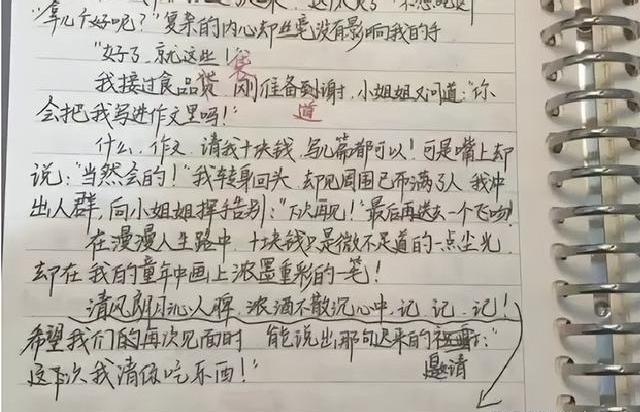 "拿几个好呢？"复杂的内心却丝毫没有影响我的手
"好了，就这些！"
我接过食品袋 刚准备到谢，小姐姐又问道："你
道
会把我写进作文里吗！"
什么，作文，请我十块钱，写几篇都可以！可是嘴上却
说："当然会的！"我转身回头，却见周围已布满了人，我冲
出人群，向小姐姐挥手告别："下次再见！"最后再送去一个飞吻！
在漫漫人生路中，十块钱只是微不足道的一点尘光，
却在我的童年中画上浓墨重彩的一笔！
清风朗月沁人脾，浓酒不散沉心中，记，记，记！
希望我们的再次见面时，能说出那句迟来的：
邀请
"这下次，我请你吃东西！"